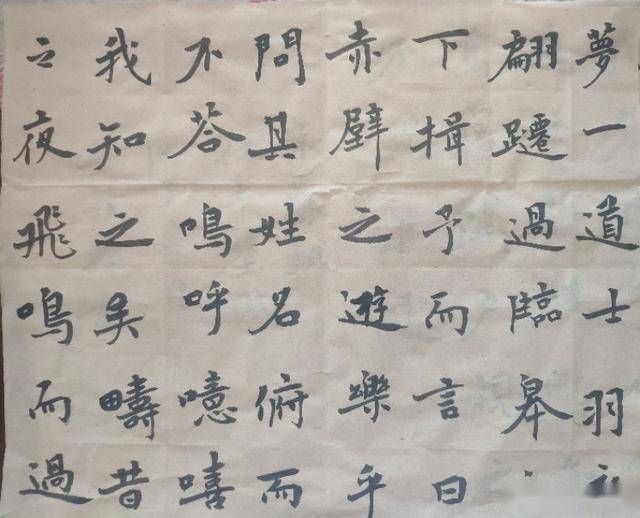 夢一道士羽
翩躚過臨皋
下揖予而言曰
赤壁之遊樂乎
問其姓名俯而
不荅嗚呼噫嘻
我知之矣疇昔
之夜飛鳴而過